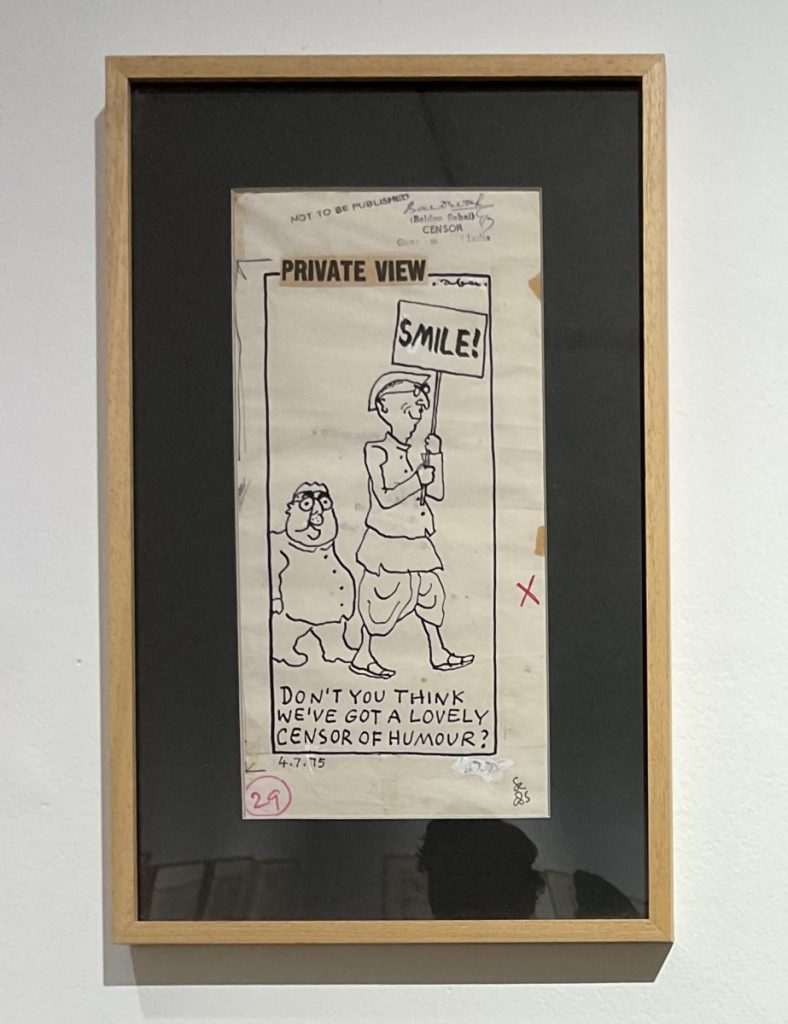 NOT TO BE PUBLISHED
(Baldeo Sahai)
CENSOR
India
PRIVATE VIEW
abu
SMILE!
DON'T YOU THINK
WE'VE GOT A LOVELY
CENSOR OF HUMOUR?
4.7.75
29
X